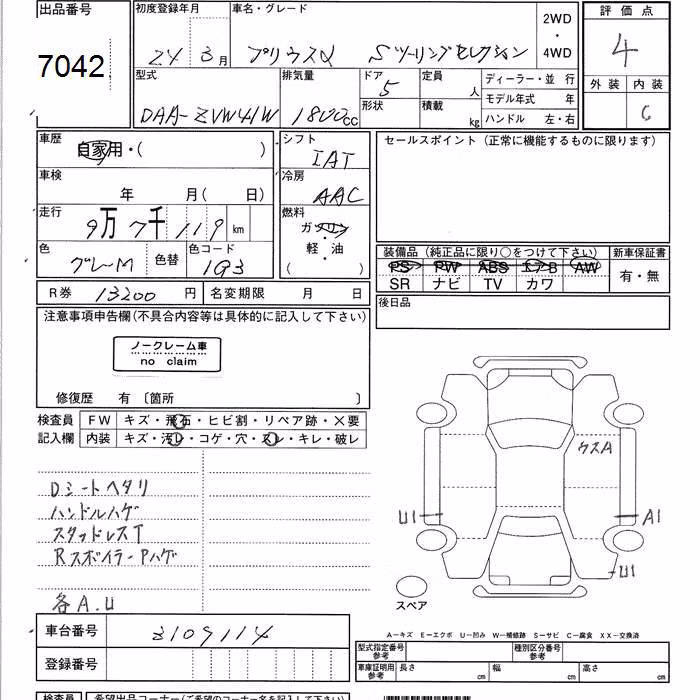 出品番号
7042
初度登録年月
24 3月
車名・グレード
プリウスα Sツーリングセレクション
2WD
・
4WD
評価点
4
外装 内装
C
型式
DAA-ZVW41W
排気量
1800cc
ドア
5
形状
定員
人
積載
kg
ディーラー・並 行
モデル年式 年
ハンドル 左・右
車歴
自家用・( )
車検
年 月( 日)
走行
9万7千119km
色
グレーM
色替
色コード
1G3
シフト
IAT
冷房
AAC
燃料
ガソリン
・
軽・油
( )
R券 13200円
名変期限 月 日
セールスポイント (正常に機能するものに限ります)
装備品 (純正品に限り○をつけて下さい)
PS PW ABS エアB AW
SR ナビ TV カワ
新車保証書
有・無
後日品
注意事項申告欄(不具合内容等は具体的に記入して下さい)
ノークレーム車
no claim
修復歴 有 〔箇所 〕
検査員
記入欄
FW キズ・飛石・ヒビ割・リペア跡・×要
内装 キズ・汚レ・コゲ・穴・スレ・キレ・破レ
Dシートヘタリ
ハンドルハゲ
スタッドレスT
Rスポイラー Pハゲ
各A.U
クスA
U1
A1
U1
スペア
車台番号 3109114
登録番号
A-キズ E-エクボ U-凹み W-補修跡 S-サビ C-腐食 XX-交換済
型式指定番号
参考
種別区分番号
参考
車庫証明用
参考
長さ cm
幅 cm
高さ cm
検査員
希望出品コーナー(ご希望のコーナー名を記入して下さい)